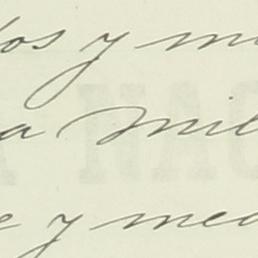 los y m
a mil
e y med